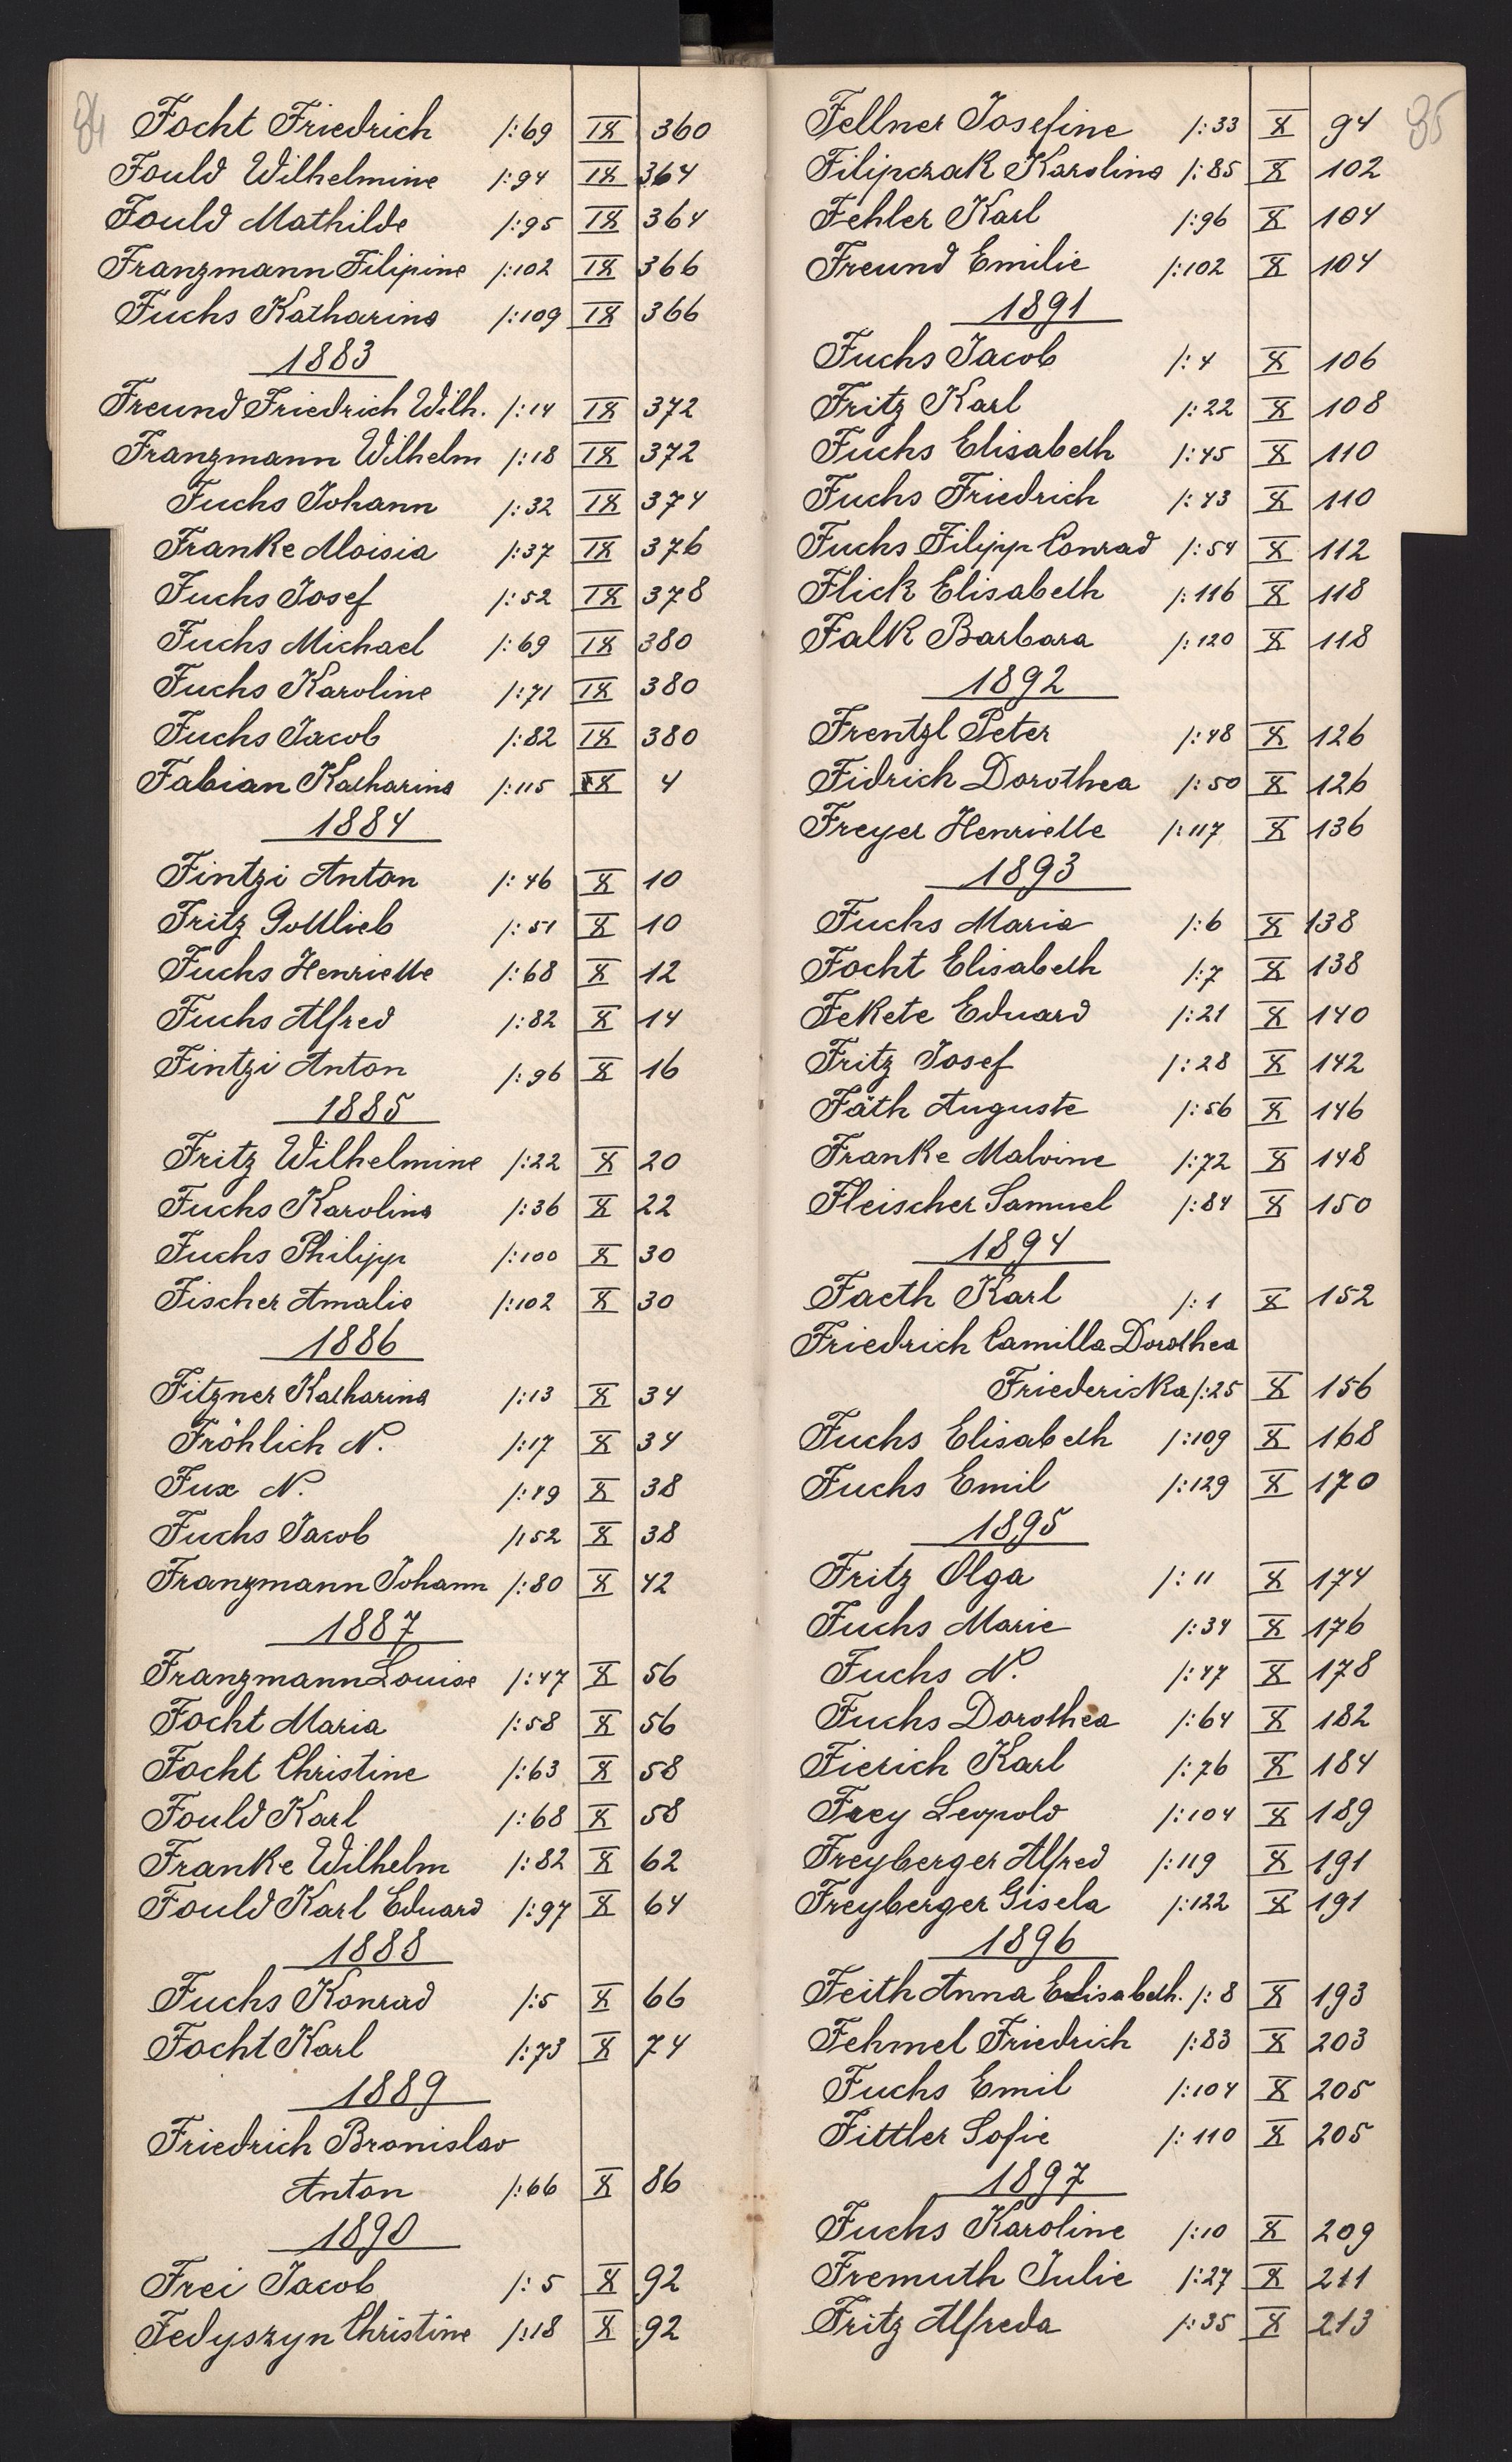 84
Focht Friedrich /:69 IX 360
Fould Wilhelmine /:94 IX 364
Fould Mathilde /:95 IX 364
Franzmann Filipine /:102 IX 366
Fuchs Katharina /:109 IX 366
1883
Freund Friedrich Wilh. /:14 IX 372
Franzmann Wilhelm /:18 IX 372
Fuchs Johann /:32 IX 374
Franke Aloisia /:37 IX 376
Fuchs Josef /:52 IX 378
Fuchs Michael /:69 IX 380
Fuchs Karoline /:71 IX 380
Fuchs Jacob /:82 IX 380
Fabian Katharina /:115 X 4
1884
Fintzi Anton /:46 X 10
Fritz Gottlieb /:51 X 10
Fuchs Henriette /:68 X 12
Fuchs Alfred /:82 X 14
Fintzi Anton /:96 X 16
1885
Fritz Wilhelmine /:22 X 20
Fuchs Karolina /:36 X 22
Fuchs Philipp /:100 X 30
Fischer Amalie /:102 X 30
1886
Fitzner Katharina /:13 X 34
Fröhlich N. /:17 X 34
Fux N. /:49 X 38
Fuchs Jacob /:52 X 38
Franzmann Johann /:80 X 42
1887
Franzmann Louise /:47 X 56
Focht Maria /:58 X 56
Focht Christine /:63 X 58
Fould Karl /:68 X 58
Franke Wilhelm /:82 X 62
Fould Karl Eduard /:97 X 64
1888
Fuchs Konrad /:5 X 66
Focht Karl /:73 X 74
1889
Friedrich Bronislav
Anton /:66 X 86
1890
Frei Jacob /:5 X 92
Fedyszyn Christine /:18 X 92
85
Fellner Josefine /:33 X 94
Filipczak Karolina /:85 X 102
Fehler Karl /:96 X 104
Freund Emilie /:102 X 104
1891
Fuchs Jacob /:4 X 106
Fritz Karl /:22 X 108
Fuchs Elisabeth /:45 X 110
Fuchs Friedrich /:43 X 110
Fuchs Filipp Conrad /:54 X 112
Flick Elisabeth /:116 X 118
Falk Barbara /:120 X 118
1892
Frentzl Peter /:48 X 126
Fidrich Dorothea /:50 X 126
Freyer Henriette /:117 X 136
1893
Fuchs Maria /:6 X 138
Focht Elisabeth /:7 X 138
Fekete Eduard /:21 X 140
Fritz Josef /:28 X 142
Fäth Auguste /:56 X 146
Franke Malvine /:72 X 148
Fleischer Samuel /:84 X 150
1894
Faeth Karl /:1 X 152
Friedrich Camilla Dorothea
Friedericka /:25 X 156
Fuchs Elisabeth /:109 X 168
Fuchs Emil /:129 X 170
1895
Fritz Olga /:11 X 174
Fuchs Marie /:34 X 176
Fuchs N. /:47 X 178
Fuchs Dorothea /:64 X 182
Fierich Karl /:76 X 184
Frey Leopold /:104 X 189
Freyberger Alfred /:119 X 191
Freyberger Gisela /:122 X 191
1896
Feith Anna Elisabeth. /:8 X 193
Fehmel Friedrich /:83 X 203
Fuchs Emil /:104 X 205
Fittler Sofie /:110 X 205
1897
Fuchs Karoline /:10 X 209
Fremuth Julie /:27 X 211
Fritz Alfreda /:35 X 213